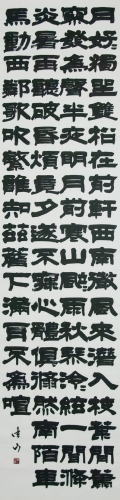 月好々獨坐雙松在前軒西南微風來潛入枝葉間蕭
寥發為聲半夜明月前寒山颯々雨秋琴泠々弦一聞滌
炎暑再聽破昏煩竟夕遂不寐心體俱翛然南陌車
馬動西鄰歌吹繁誰知茲簷下滿耳不為喧